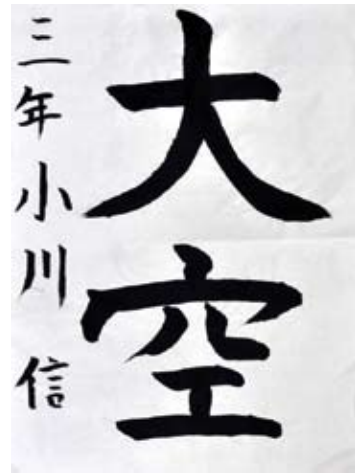 大空
三年小川信